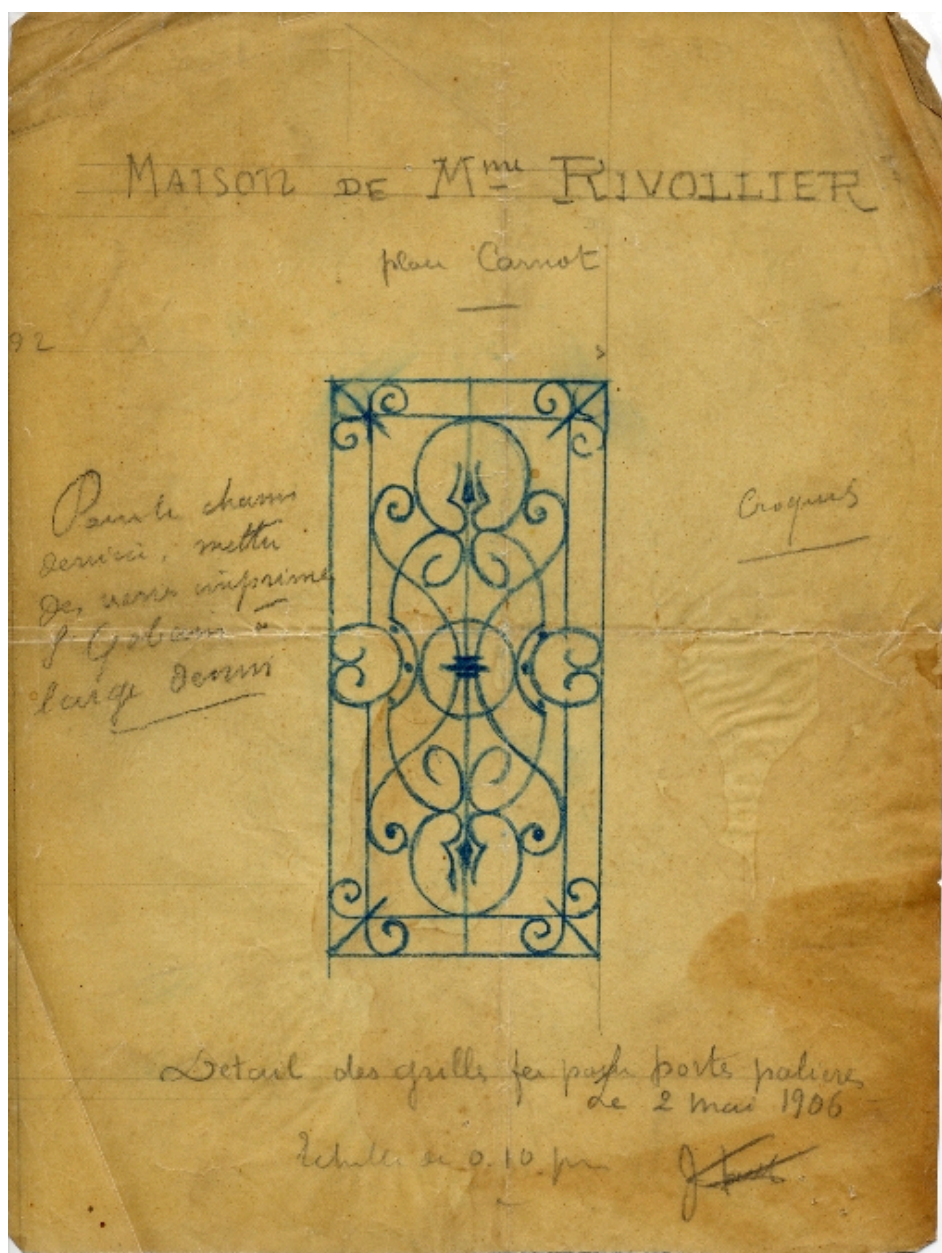 MAISON DE Mme RIVOLLIER
place Carnot
92
Croquis
derrière, mettre
des verres imprimés
St Gobain à
large dessin
Détail des grilles fer pour portes palières
Le 2 mai 1906
Echelle de 0.10 pm